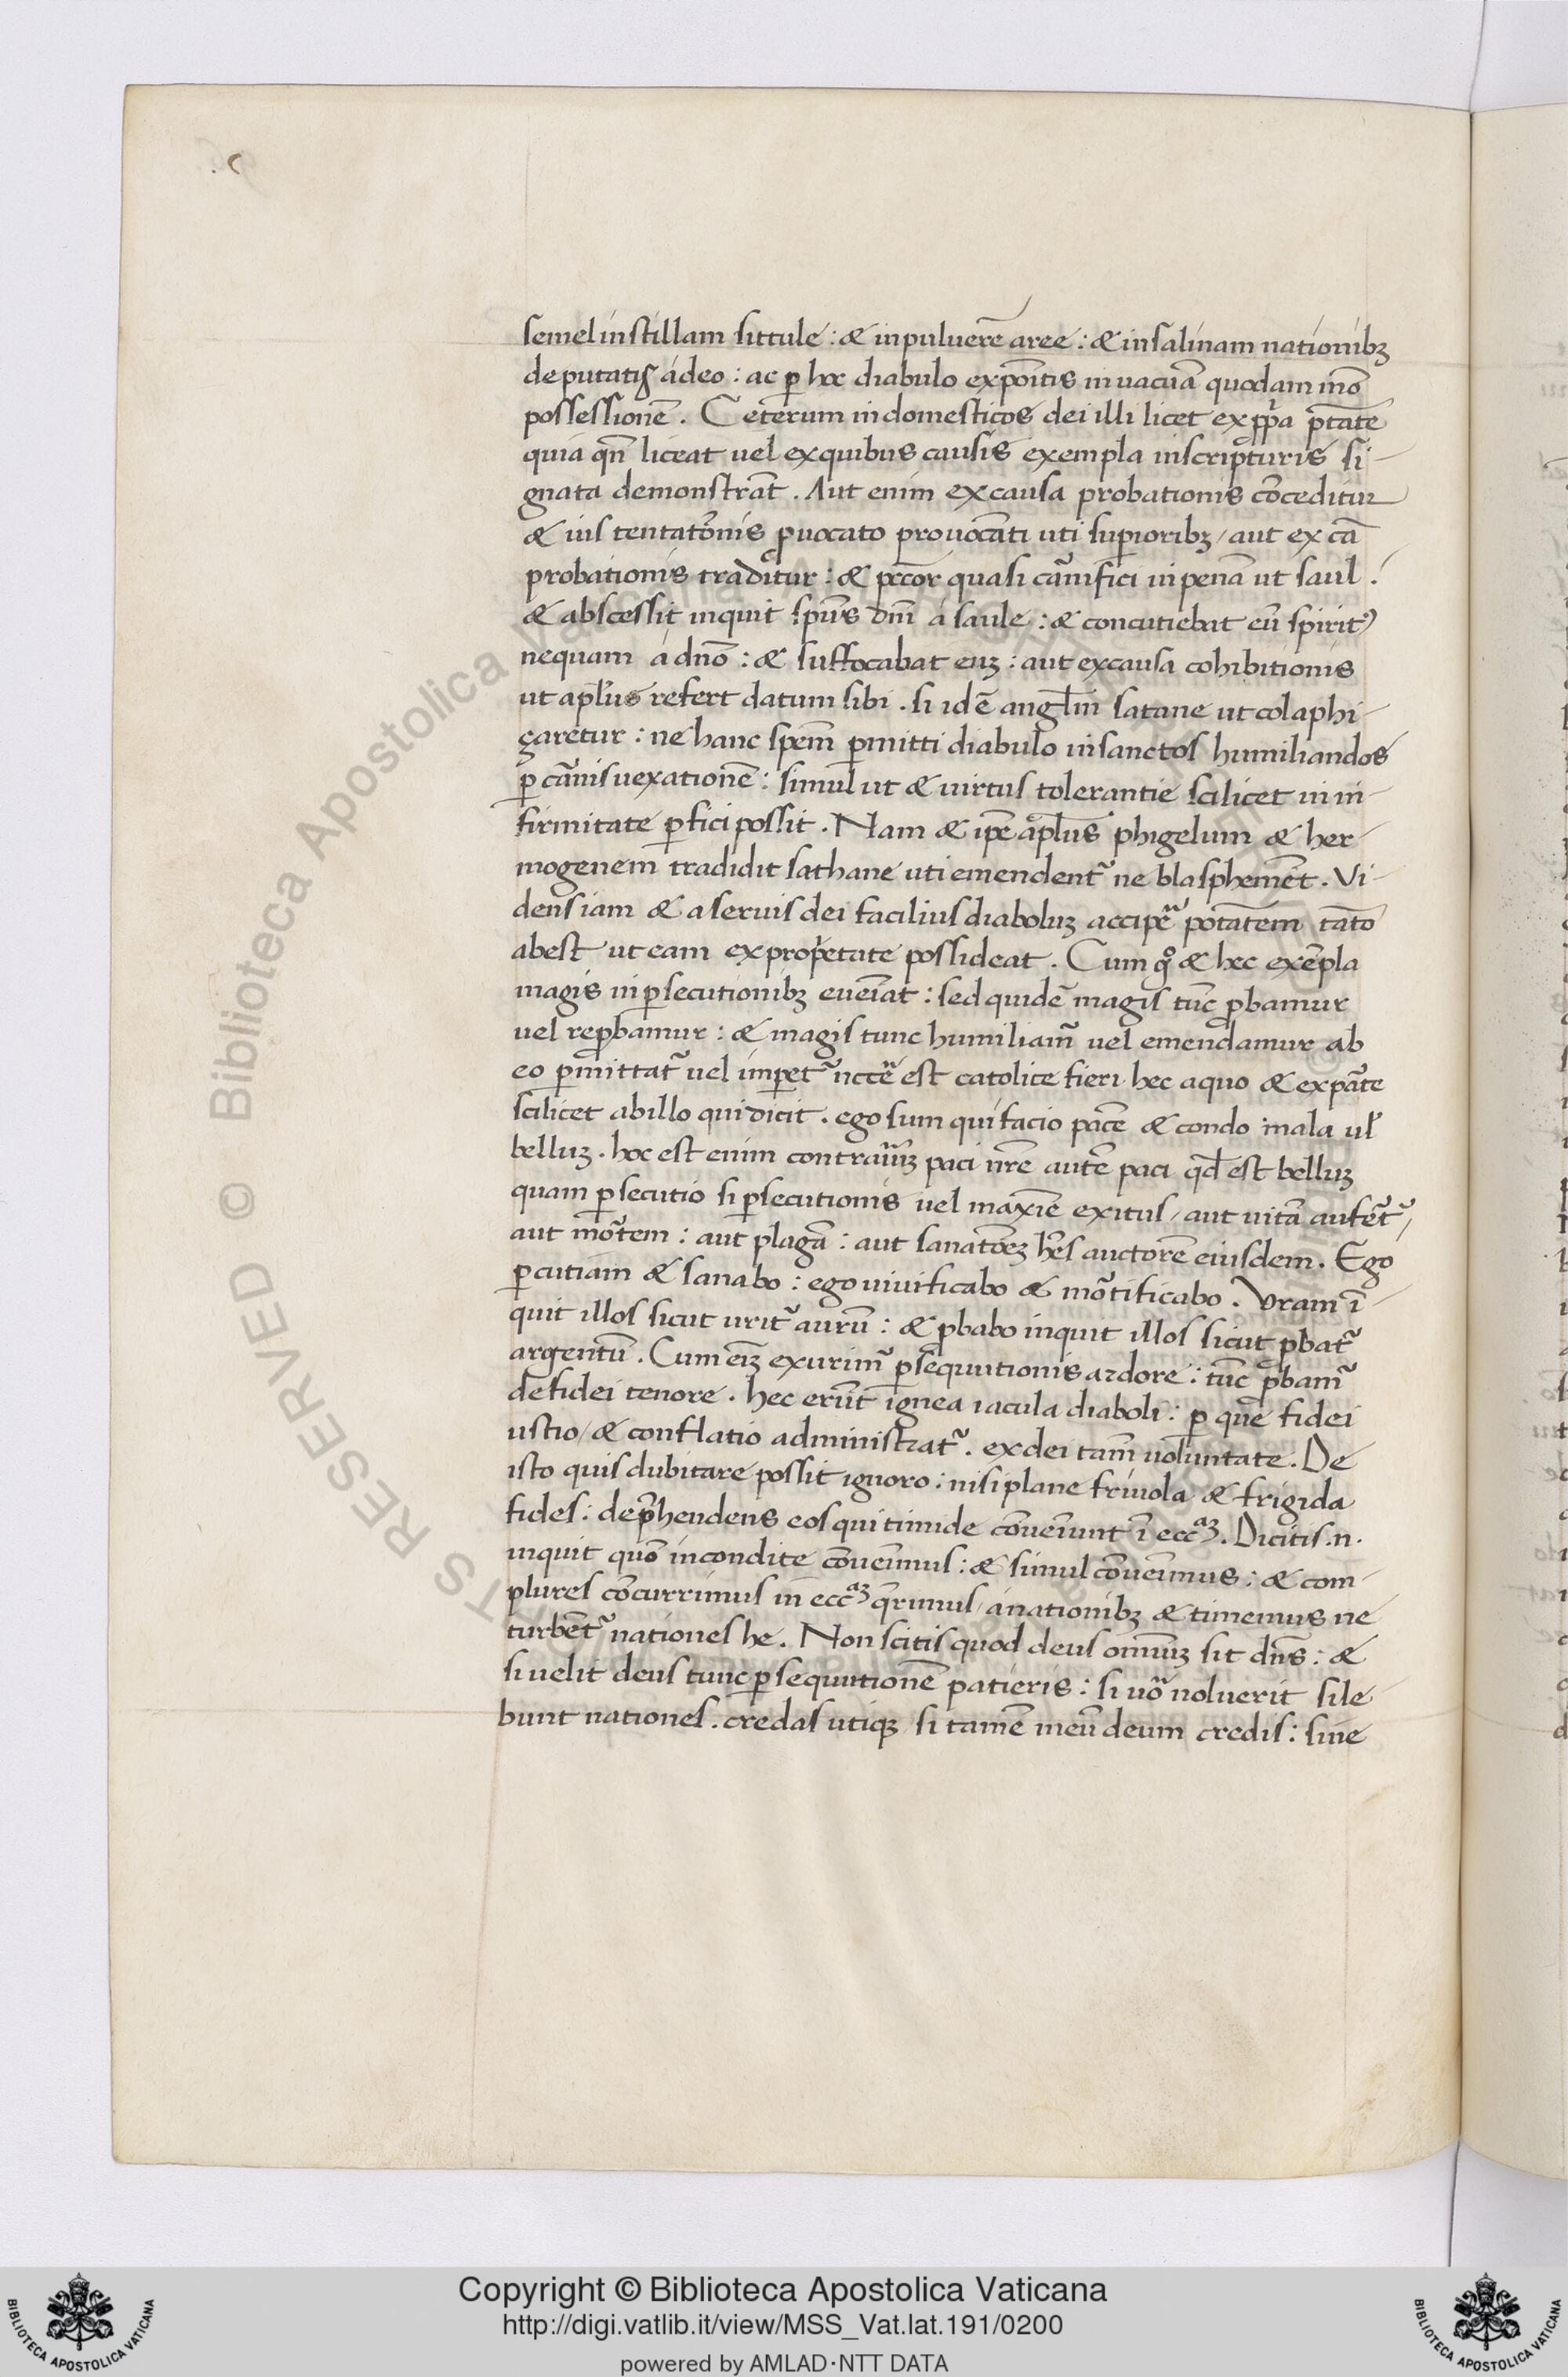 semel in stillam sittule : & in puluerē aree : & in salinam nationibꝫ
deputatis ádeo : ac ꝑ hoc diabulo expoītis in vacuā quodam mō
possessionē . Ceterum in domesticos dei illi licet ex ꝓpa ptāte
quia qñ liceat uel ex quibus causis exempla in scripturis si-
gnata demonstrāt . Aut enim ex causa probationis cōceditur
& ius tentatōnis ꝓuocato prouocāti uti suꝑioribꝫ / aut ex cā
probationis traditur : & pctōr quasi carnifici in penā ut saul .
& abscessit inquit spūs dnī á saule : & concutiebat eū spiritꝰ
nequam á dno : & suffocabat euꝫ : aut ex causa cohibitionis
ut aplus refert datum sibi . si idē anglm̄ satane ut colaphi-
çaretur : ne hanc spem̄ ꝑmitti diabulo in sanctos humiliandos
ꝑ carnis uexationē : simul ut & uirtus tolerantie scilicet in in-
firmitate ꝑfici possit . Nam & ipe aplus phigelum & her-
mogenem tradidit sathane uti emendent᷑ ne blasphemēt . Vi-
dens iam & a seruis dei facilius diaboluꝫ accipe potātem tāto
abest ut eam ex proprietate possideat . Cum g̊ & hec exēpla
magis in ꝑsecutionibꝫ eueniāt : sed quidē magis tūc ꝓbamur
uel reꝓbamur : & magis tunc humiliam᷑ uel emendamur ab
eo ꝑmittat᷑ uel imꝑet᷑ nccē est catolice fieri . hec a quo & ex parte
scilicet ab illo qui dicit . ego sum qui facio pacē & condo mala ul̓
belluꝫ . hoc est enim contrariuꝫ paci nr̄e autē paci qd̄ est belluꝫ
quam ꝑsecutio si ꝑsecutionis uel maxīe exitus / aut uitā aufēt᷑ /
aut mortem : aut plagā : aut sanatōeꝫ hēs auctorē eiusdem . Ego
ꝑcutiam & sanabo : ego uiuificabo & mortificabo . Vram ī-
quit illos sicut urit᷑ aurū : & ꝓbabo inquit illos sicut ꝓbat᷑
argentū . Cum eīꝫ exurim᷑ ꝑsequutionis ardore : tūc ꝓbam᷑
de fidei tenore . hec erūt ignea iacula diaboli : ꝑ que fidei
ustio / & conflatio administrat᷑ . ex dei tam̄ uoluntate . De
isto quis dubitare possit ignoro : nisi plane friuola & frigida
fides : dep̄hendens eos qui timide cōueniunt ī eccᵃꝫ . Dicitis .n.
inquit quō incondite cōuenimus : & simul cōuenimus : & com-
plures cōcurrimus in eccᵃꝫ q̄rimus / á nationibꝫ & timemus ne
turbēt᷑ nationes he . Non scitis quod deus omniuꝫ sit dn̄s : &
si uelit deus tunc ꝑsequutionē patieris : si uō noluerit sile
bunt nationes . credas utiqꝫ si tamē meū deum credis : sine
Copyright © Biblioteca Apostolica Vaticana
http://digi.vatlib.it/view/MSS_Vat.lat.191/0200
powered by AMLAD·NTT DATA